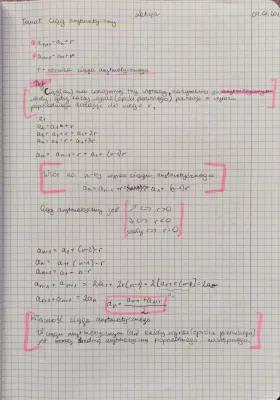 Temat: Ciąg arytmetyczny
Lekcja
a_{n+1} = a_n + r
a_{n+1} - a_n = r
r - różnica ciągu arytmetycznego
Ciąg (a_n) ma co najmniej trzy wyrazy, nazywamy arytmetycznym
jeśli jego każdy wyraz (oprócz pierwszego) powstaje z wyrazu
poprzedniego dodając do niego r.
a_1
a_2 = a_1 + r
a_3 = a_2 + r = a_1 + 2r
a_4 = a_3 + r = a_1 + 3r
a_n = a_{n-1} + r = a_1 + (n-1)r
Wzór na n-ty wyraz ciągu arytmetycznego
a_n = a_{n-1} + r = a_1 + (n-1)r
Ciąg arytmetyczny jest
↗ ⇔ r > 0
↘ ⇔ r < 0
stały ⇔ r = 0
a_{n-1} = a_1 + (n-2)r
a_n = a_1 + (n-1)r
a_{n+1} = a_1 + n·r
a_{n-1} + a_{n+1} = 2a_1 + 2r(n-1) = 2[a_1 + r(n-1)] = 2a_n
a_{n-1} + a_{n+1} = 2a_n
a_n = \frac{a_{n-1} + a_{n+1}}{2}
Własność ciągu arytmetycznego
W ciągu arytmetycznym (a_n) każdy wyraz (oprócz pierwszego)
jest średnią arytmetyczną poprzedniego i następnego.